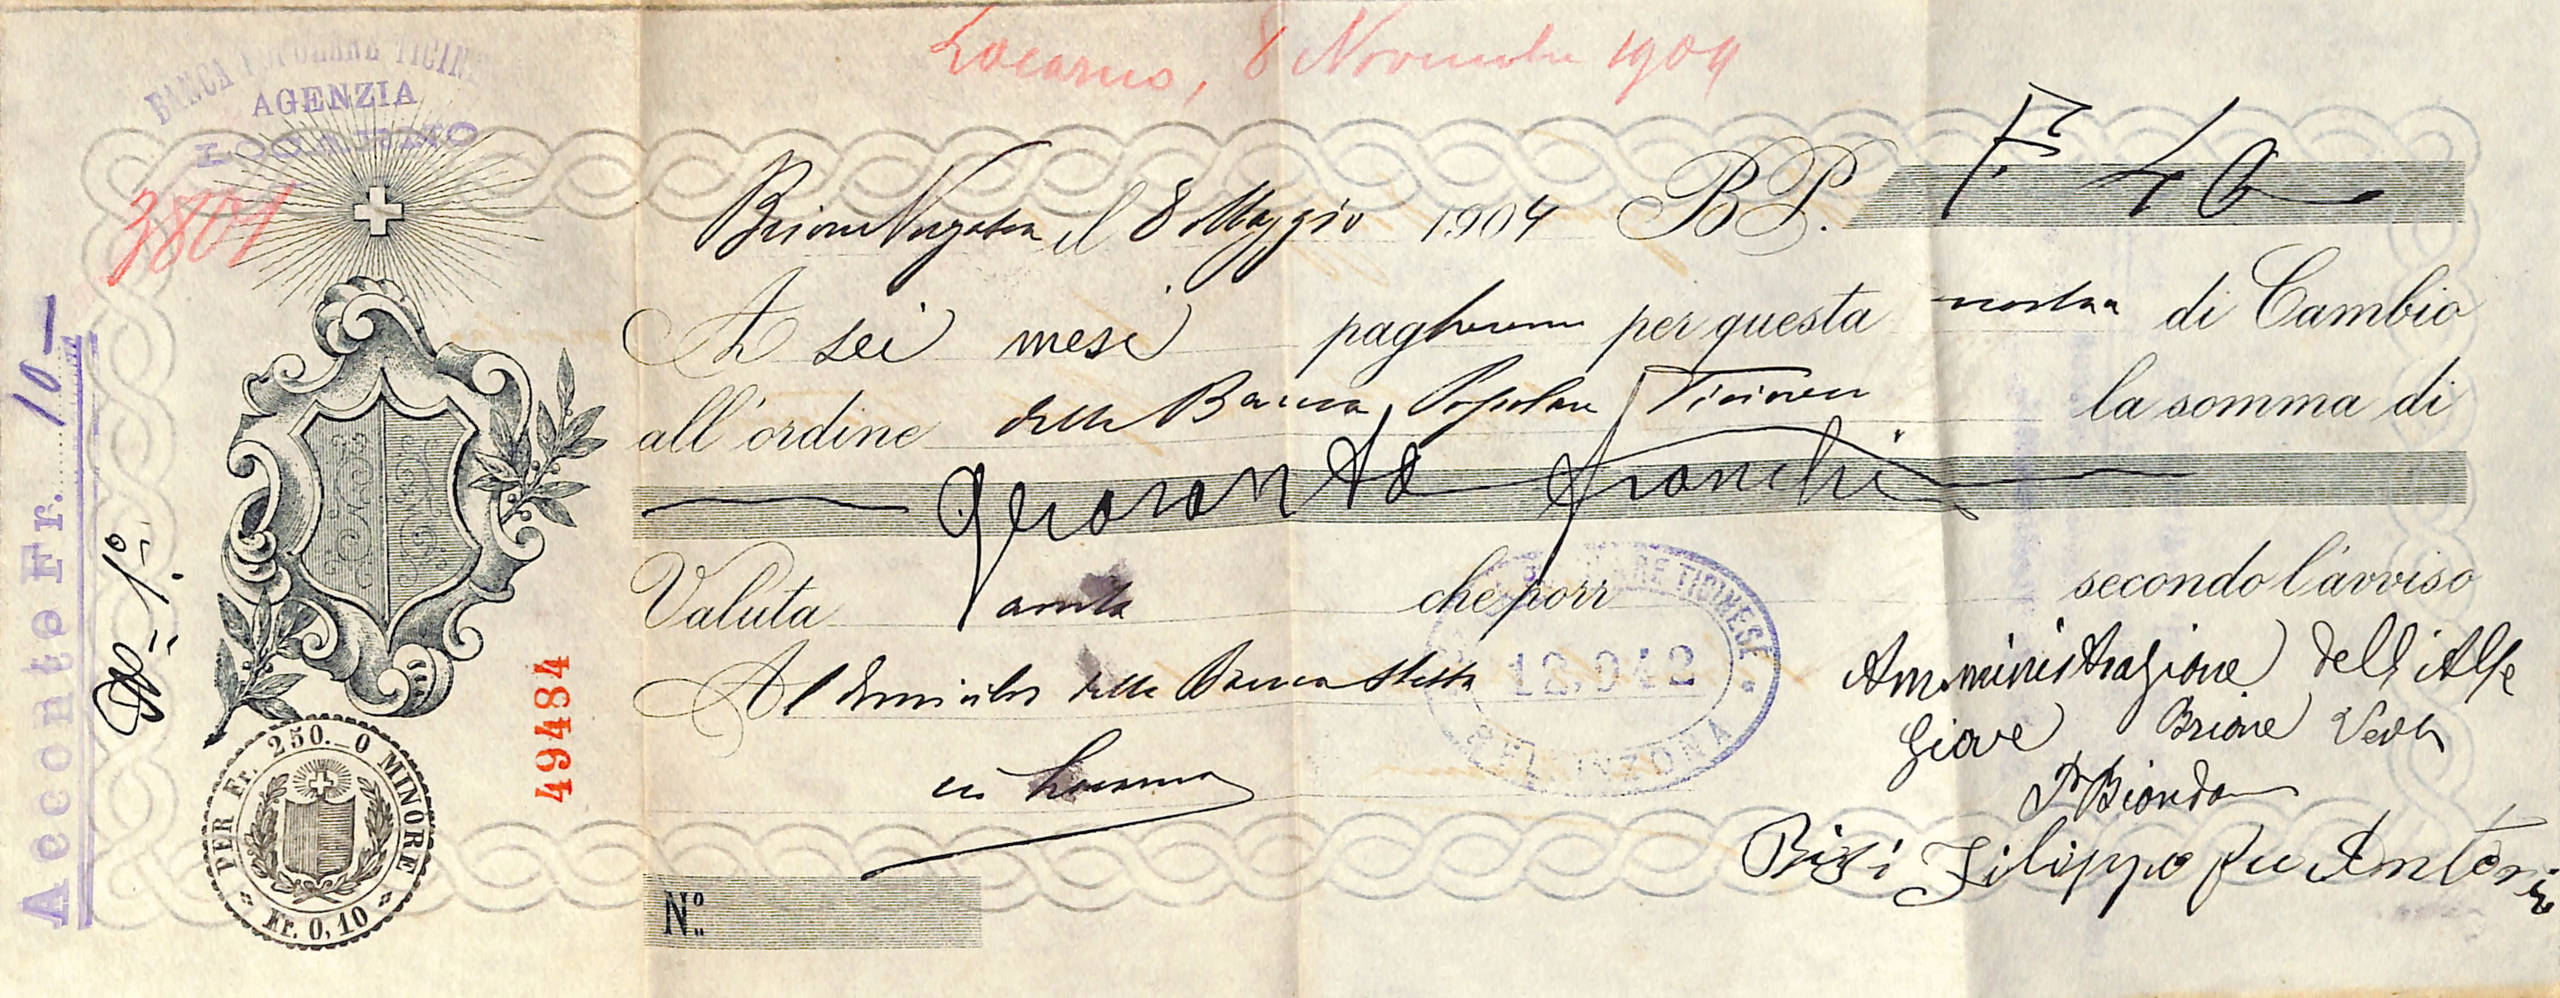 Locarno, 8 Novembre 1904
BANCA POPOLARE TICINESE
AGENZIA
LOCARNO
3801
Brione Verzasca il 8 Maggio 1904 B.P. F. 40
A sei mesi pagheremo per questa nostra di Cambio
all'ordine della Banca Popolare Ticinese la somma di
quaranta franchi
Valuta che porr secondo l'avviso
Al domicilio della Banca stessa
in Locarno
Amministrazione dell'Alpe
Giove Brione Verz
Biondo
Filippo fu Antonio
BANCA POPOLARE TICINESE
12.942
BELLINZONA
Acconto Fr. 10
No. 1º
49484
PER Fr. 250.- O MINORE
Fr. 0,10
Nº